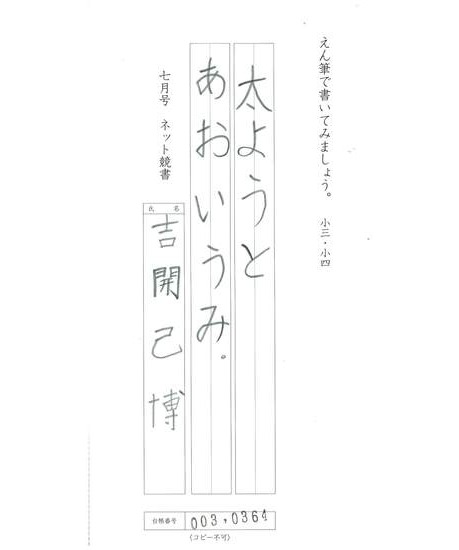 えん筆で書いてみましょう。 小三・小四
太ようと
あおいうみ。
七月号 ネット競書
氏名
吉開己博
台帳番号 003,0364
(コピー不可)